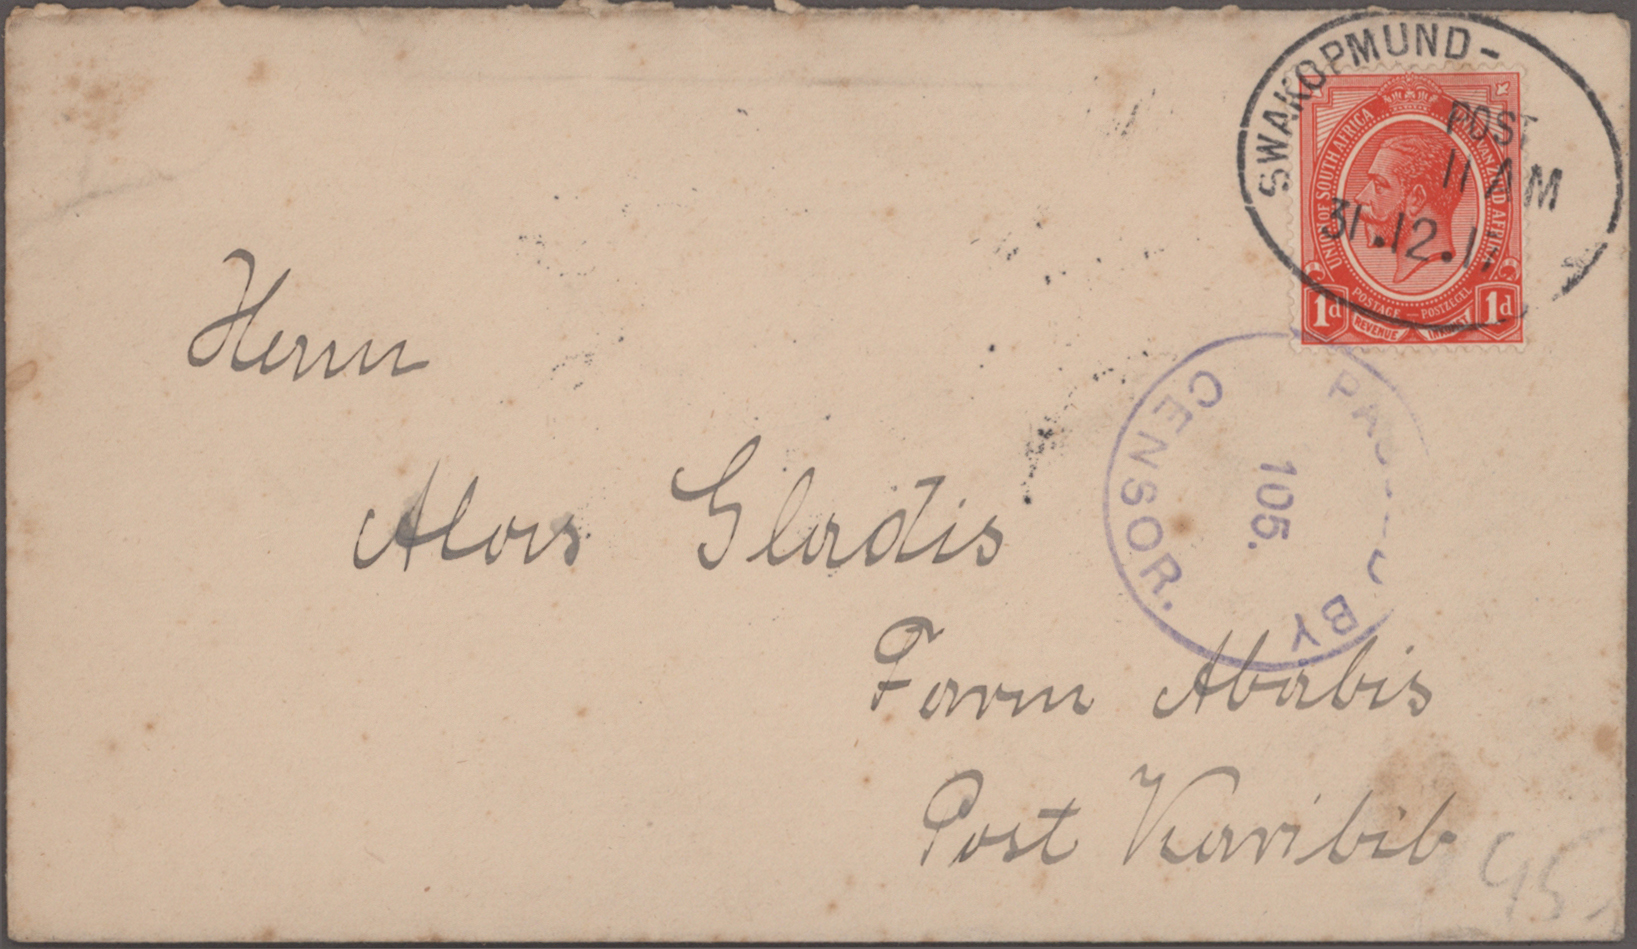 SWAKOPMUND-
POST
11 AM
31.12.17
UNION OF SOUTH AFRICA
UNIE VAN ZUID AFRIKA
POSTAGE — POSTZEGEL
REVENUE INKOMST
1d 1d
Herrn
PASSED BY
CENSOR.
105.
Alois Gladis
Farm Ababis
Post Karibib